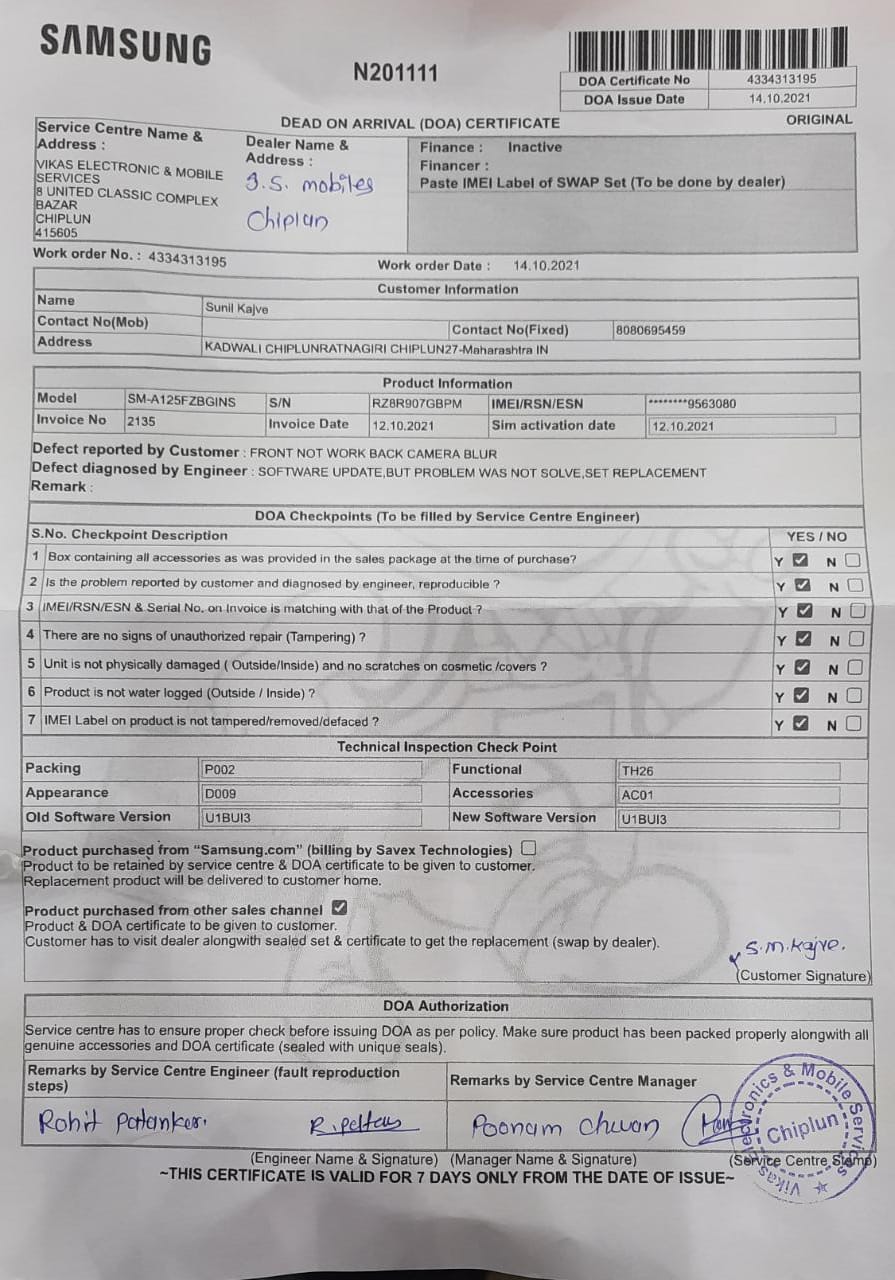 SAMSUNG
N201111
DOA Certificate No 4334313195
DOA Issue Date 14.10.2021
DEAD ON ARRIVAL (DOA) CERTIFICATE
ORIGINAL
Service Centre Name &
Address :
VIKAS ELECTRONIC & MOBILE
SERVICES
8 UNITED CLASSIC COMPLEX
BAZAR
CHIPLUN
415605
Dealer Name &
Address :
J.S. mobiles
Chiplun
Finance : Inactive
Financer :
Paste IMEI Label of SWAP Set (To be done by dealer)
Work order No. : 4334313195
Work order Date : 14.10.2021
Customer Information
Name Sunil Kajve
Contact No(Mob) Contact No(Fixed) 8080695459
Address KADWALI CHIPLUNRATNAGIRI CHIPLUN27-Maharashtra IN
Product Information
Model SM-A125FZBGINS S/N RZ8R907GBPM IMEI/RSN/ESN ********9563080
Invoice No 2135 Invoice Date 12.10.2021 Sim activation date 12.10.2021
Defect reported by Customer : FRONT NOT WORK BACK CAMERA BLUR
Defect diagnosed by Engineer : SOFTWARE UPDATE,BUT PROBLEM WAS NOT SOLVE,SET REPLACEMENT
Remark :
DOA Checkpoints (To be filled by Service Centre Engineer)
S.No. Checkpoint Description YES / NO
1 Box containing all accessories as was provided in the sales package at the time of purchase? Y N
2 Is the problem reported by customer and diagnosed by engineer, reproducible ? Y N
3 IMEI/RSN/ESN & Serial No. on Invoice is matching with that of the Product ? Y N
4 There are no signs of unauthorized repair (Tampering) ? Y N
5 Unit is not physically damaged ( Outside/Inside) and no scratches on cosmetic /covers ? Y N
6 Product is not water logged (Outside / Inside) ? Y N
7 IMEI Label on product is not tampered/removed/defaced ? Y N
Technical Inspection Check Point
Packing P002 Functional TH26
Appearance D009 Accessories AC01
Old Software Version U1BUI3 New Software Version U1BUI3
Product purchased from “Samsung.com” (billing by Savex Technologies)
Product to be retained by service centre & DOA certificate to be given to customer.
Replacement product will be delivered to customer home.
Product purchased from other sales channel
Product & DOA certificate to be given to customer.
Customer has to visit dealer alongwith sealed set & certificate to get the replacement (swap by dealer).
S.M.Kajve.
(Customer Signature)
DOA Authorization
Service centre has to ensure proper check before issuing DOA as per policy. Make sure product has been packed properly alongwith all
genuine accessories and DOA certificate (sealed with unique seals).
Remarks by Service Centre Engineer (fault reproduction
steps)
Remarks by Service Centre Manager
Rohit Patankar.
Poonam Chvan
Vikas Electronics & Mobile Services
Chiplun
(Engineer Name & Signature) (Manager Name & Signature) (Service Centre Stamp)
~THIS CERTIFICATE IS VALID FOR 7 DAYS ONLY FROM THE DATE OF ISSUE~